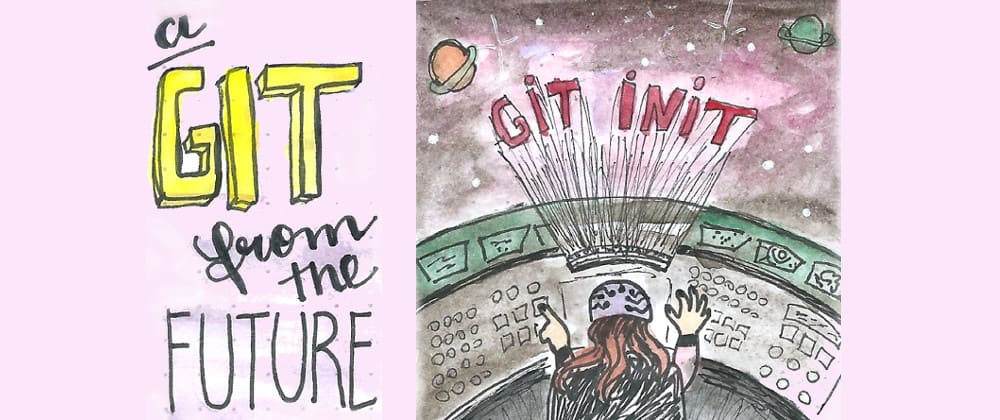 a
GIT
from
the
FUTURE
GIT INIT